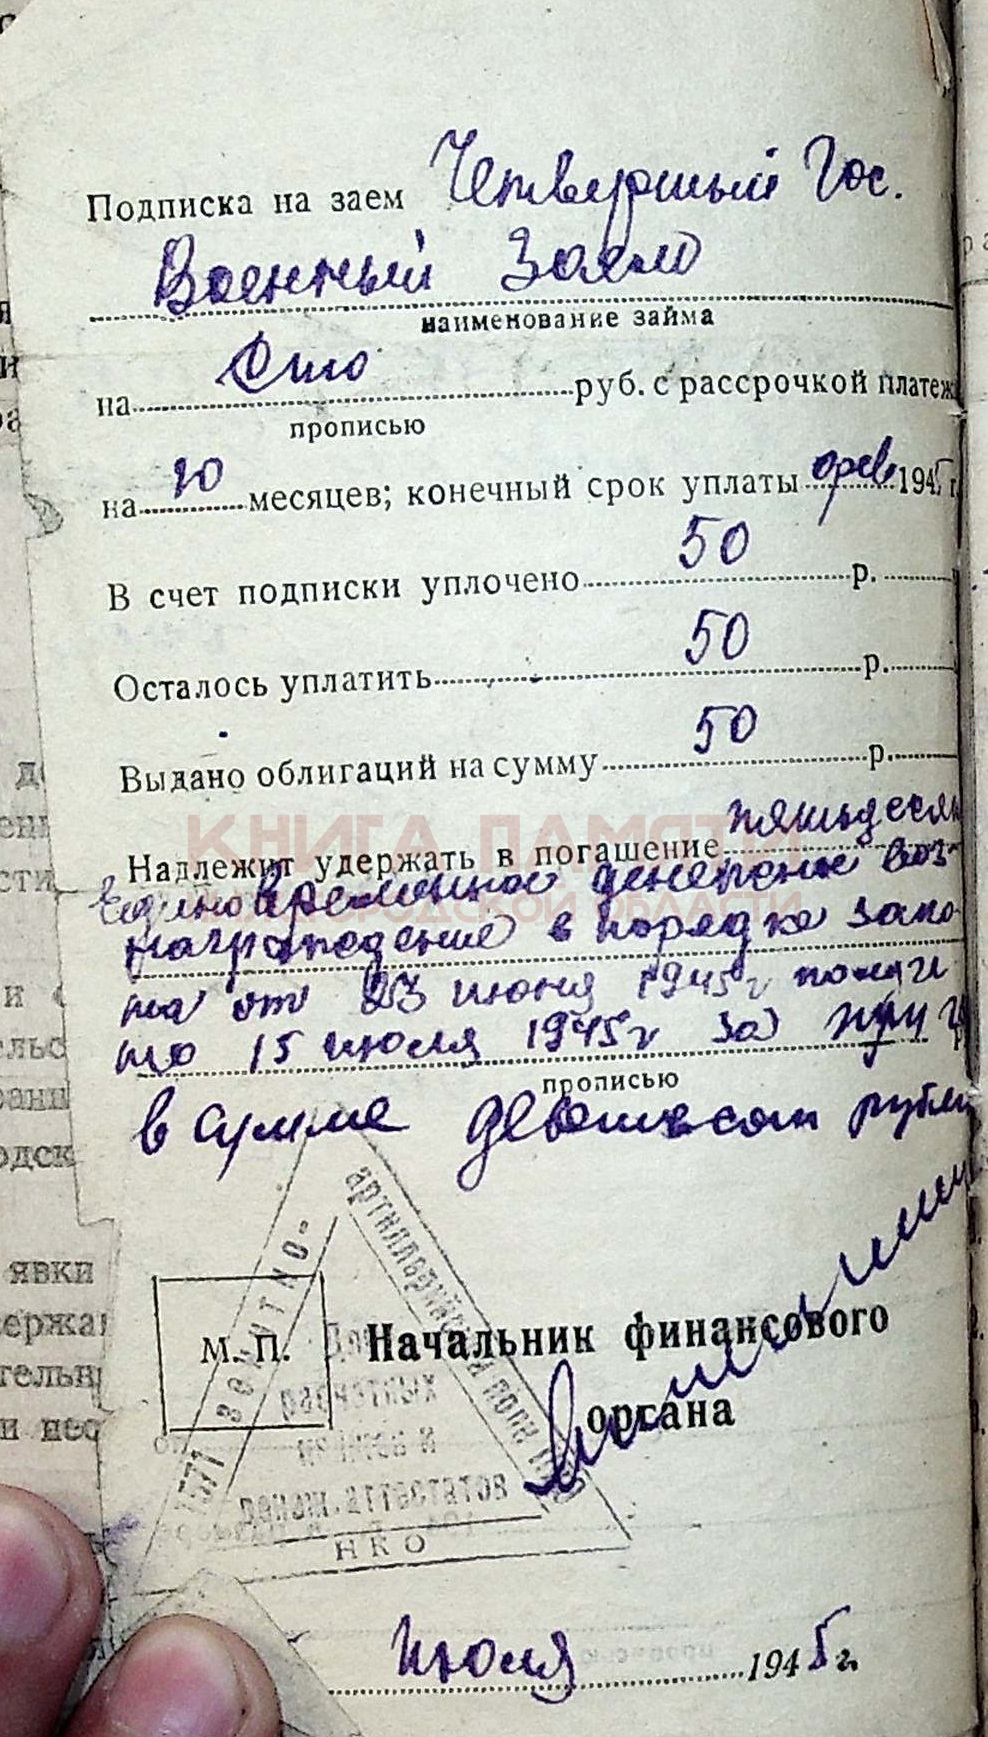 Подписка на заем Четвертый Гос.
Военный Заем
наименование займа
на Сто руб. с рассрочкой платеж
прописью
на 10 месяцев; конечный срок уплаты фев 1945 г.
В счет подписки уплочено 50 р.
Осталось уплатить 50 р.
Выдано облигаций на сумму 50 р.
КНИГА ПАМЯТИ
Надлежит удержать в погашение пятьдесят
Единовременное денежное воз-
ОБЛАСТИ
награждение в порядке зако-
на от 23 июня 1945г
то 15 июля 1945г за три г
прописью
в сумме девятьсот рубли
1571 зенитно-
артиллерийский полк
М. П. Начальник финансового
расчетных
органа
книжек и
денеж. аттестатов
НКО
июля 1945 г.